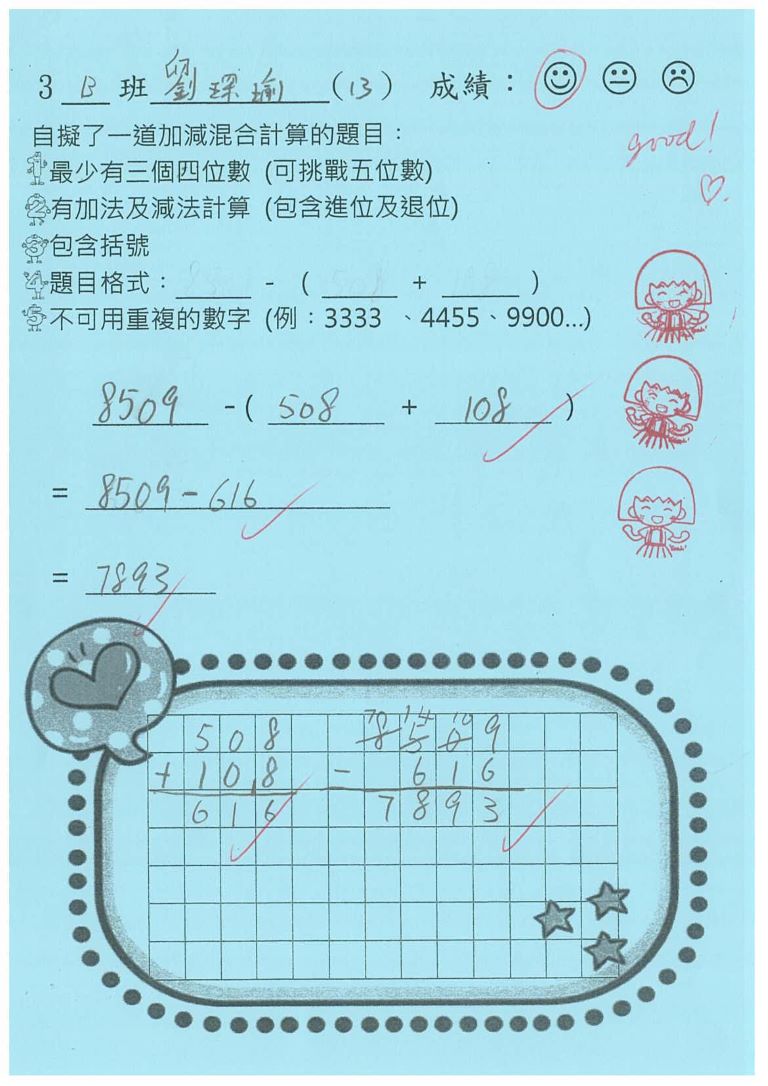 3 B 班 劉琛瑜 (13) 成績：
good!
自擬了一道加減混合計算的題目：
1 最少有三個四位數 (可挑戰五位數)
2 有加法及減法計算 (包含進位及退位)
3 包含括號
4 題目格式：______ - ( ______ + ______ )
5 不可用重複的數字 (例：3333 、4455、9900...)
8509 - ( 508 + 108 )
= 8509 - 616
= 7893
7 14 10
508 8509
+ 108 - 616
616 7893